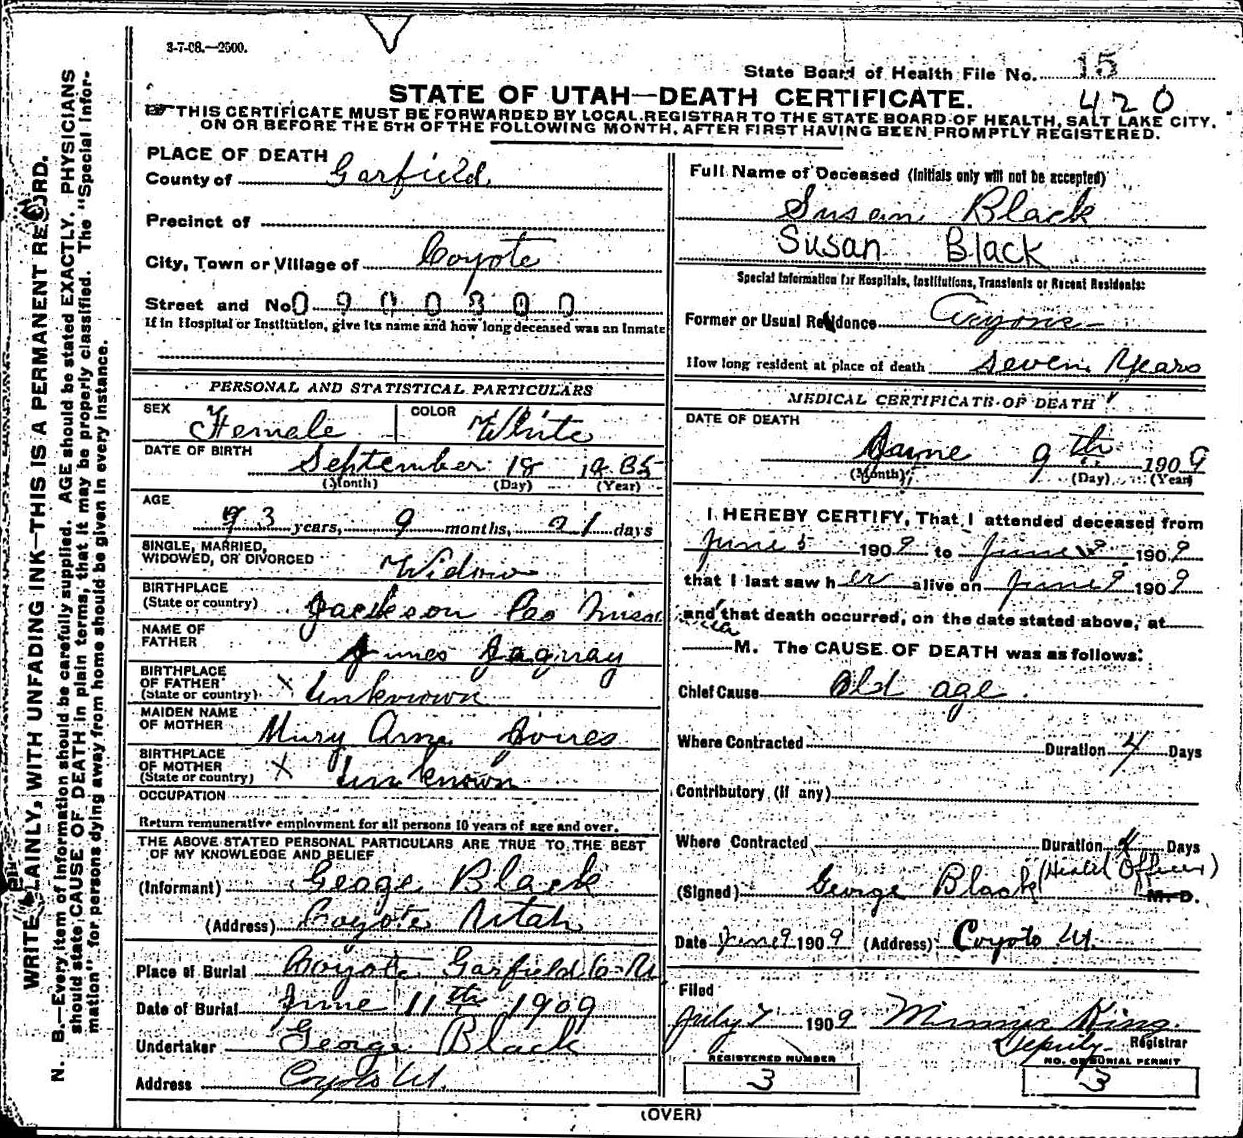 3-7-08.—2500.
State Board of Health File No. 15
420
STATE OF UTAH—DEATH CERTIFICATE.
THIS CERTIFICATE MUST BE FORWARDED BY LOCAL REGISTRAR TO THE STATE BOARD OF HEALTH, SALT LAKE CITY,
ON OR BEFORE THE 5TH OF THE FOLLOWING MONTH, AFTER FIRST HAVING BEEN PROMPTLY REGISTERED.
WRITE PLAINLY, WITH UNFADING INK—THIS IS A PERMANENT RECORD.
N. B.—Every item of information should be carefully supplied. AGE should be stated EXACTLY. PHYSICIANS
should state CAUSE OF DEATH in plain terms, that it may be properly classified. The "Special Infor-
mation" for persons dying away from home should be given in every instance.
PLACE OF DEATH
County of Garfield
Precinct of
City, Town or Village of Coyote
Street and No 0900300
If in Hospital or Institution, give its name and how long deceased was an Inmate
PERSONAL AND STATISTICAL PARTICULARS
SEX Female COLOR White
DATE OF BIRTH September 18 1835
(Month) (Day) (Year)
AGE
73 years, 9 months, 21 days
SINGLE, MARRIED,
WIDOWED, OR DIVORCED Widow
BIRTHPLACE
(State or country) Jackson Co
NAME OF
FATHER James
BIRTHPLACE
OF FATHER
(State or country) X Unknown
MAIDEN NAME
OF MOTHER Mary Ann
BIRTHPLACE
OF MOTHER
(State or country) X Unknown
OCCUPATION
Return remunerative employment for all persons 10 years of age and over.
THE ABOVE STATED PERSONAL PARTICULARS ARE TRUE TO THE BEST
OF MY KNOWLEDGE AND BELIEF
(Informant) George Black
(Address) Coyote Utah
Place of Burial Coyote Garfield Co. U
Date of Burial June 11th 1909
Undertaker George Black
Address Coyoto Ut.
Full Name of Deceased (Initials only will not be accepted)
Susan Black
Susan Black
Special Information for Hospitals, Institutions, Transients or Recent Residents:
Former or Usual Residence
How long resident at place of death Seven Years
MEDICAL CERTIFICATE OF DEATH
DATE OF DEATH
June 9th 1909
(Month) (Day) (Year)
I HEREBY CERTIFY, That I attended deceased from
June 5 1909 to June 1909
that I last saw her alive on June 9 1909
and that death occurred, on the date stated above, at
M. The CAUSE OF DEATH was as follows:
Chief Cause Old age
Where Contracted Duration 4 Days
Contributory (if any)
Where Contracted Duration Days
(Signed) George Black (Health Officer) M. D.
Date June 9 1909 (Address) Coyoto Ut.
Filed
July 7 1909 King
Deputy Registrar
REGISTERED NUMBER
3
NO. OF BURIAL PERMIT
3
(OVER)